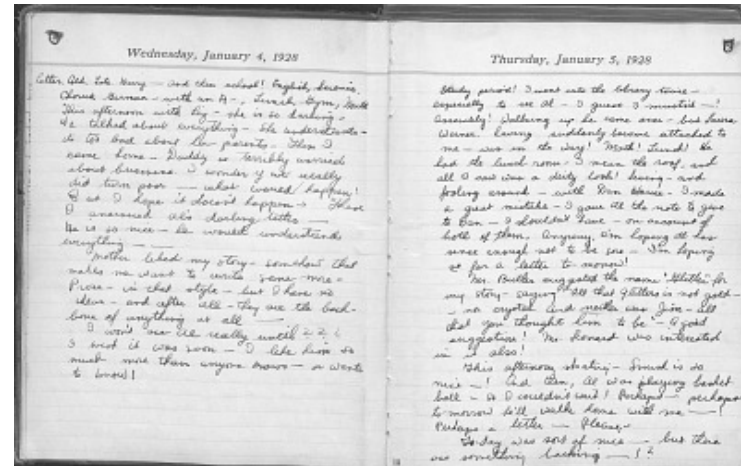 Wednesday, January 4, 1928
letter. and then school! English, Science,
Chorus German - with an A-, Lunch, Gym, Math
This afternoon with - she is so darling.
We talked about everything - She understands -
is too bad about her parents. Then I
came home - Daddy is terribly worried
about business. I wonder if we really
did turn poor - what would happen!
But I hope it doesn't happen -
I answered Al's darling letter -
He is so nice - he would understand
everything -
Mother liked my story - somehow that
makes me want to write some more -
Prose - in that style - but I have no
ideas - and after all - they are the back-
bone of anything at all -
I won't see Al really until ? ? ?
I wish it was soon - I like him so
much more than anyone knows - or wants
to know!
Thursday, January 5, 1928
Study period! I went into the library twice -
especially to see Al - I guess I mustn't - !
Assembly! Walking up he came over - but
Werner, having suddenly become attached to
me - was in the way! Math! Lunch! He
had the lunch room - I mean the roof, and
all I saw was a dirty look! and
fooling around - with - I made
a great mistake - I gave Al the note to give
to Ben - I shouldn't have - on account of
both of them. Anyway, I'm hoping Al has
sense enough not to be sore - I'm hoping
so for a letter to-morrow!
Mr. Butler suggested the name "Glitter" for
my story - saying "All that glitters is not gold -
- nor crystal. And neither was Jim - all
that you thought him to be - A good
suggestion! Mr. Leonard was interested
in it also!
This afternoon skating - is so
nice - ! And then, Al was playing basket
ball - I couldn't wait! Perhaps - perhaps
to-morrow he'll walk home with me - !
Perhaps a letter - Please,-
To-day was sort of nice - but there
was something lacking - ! ?